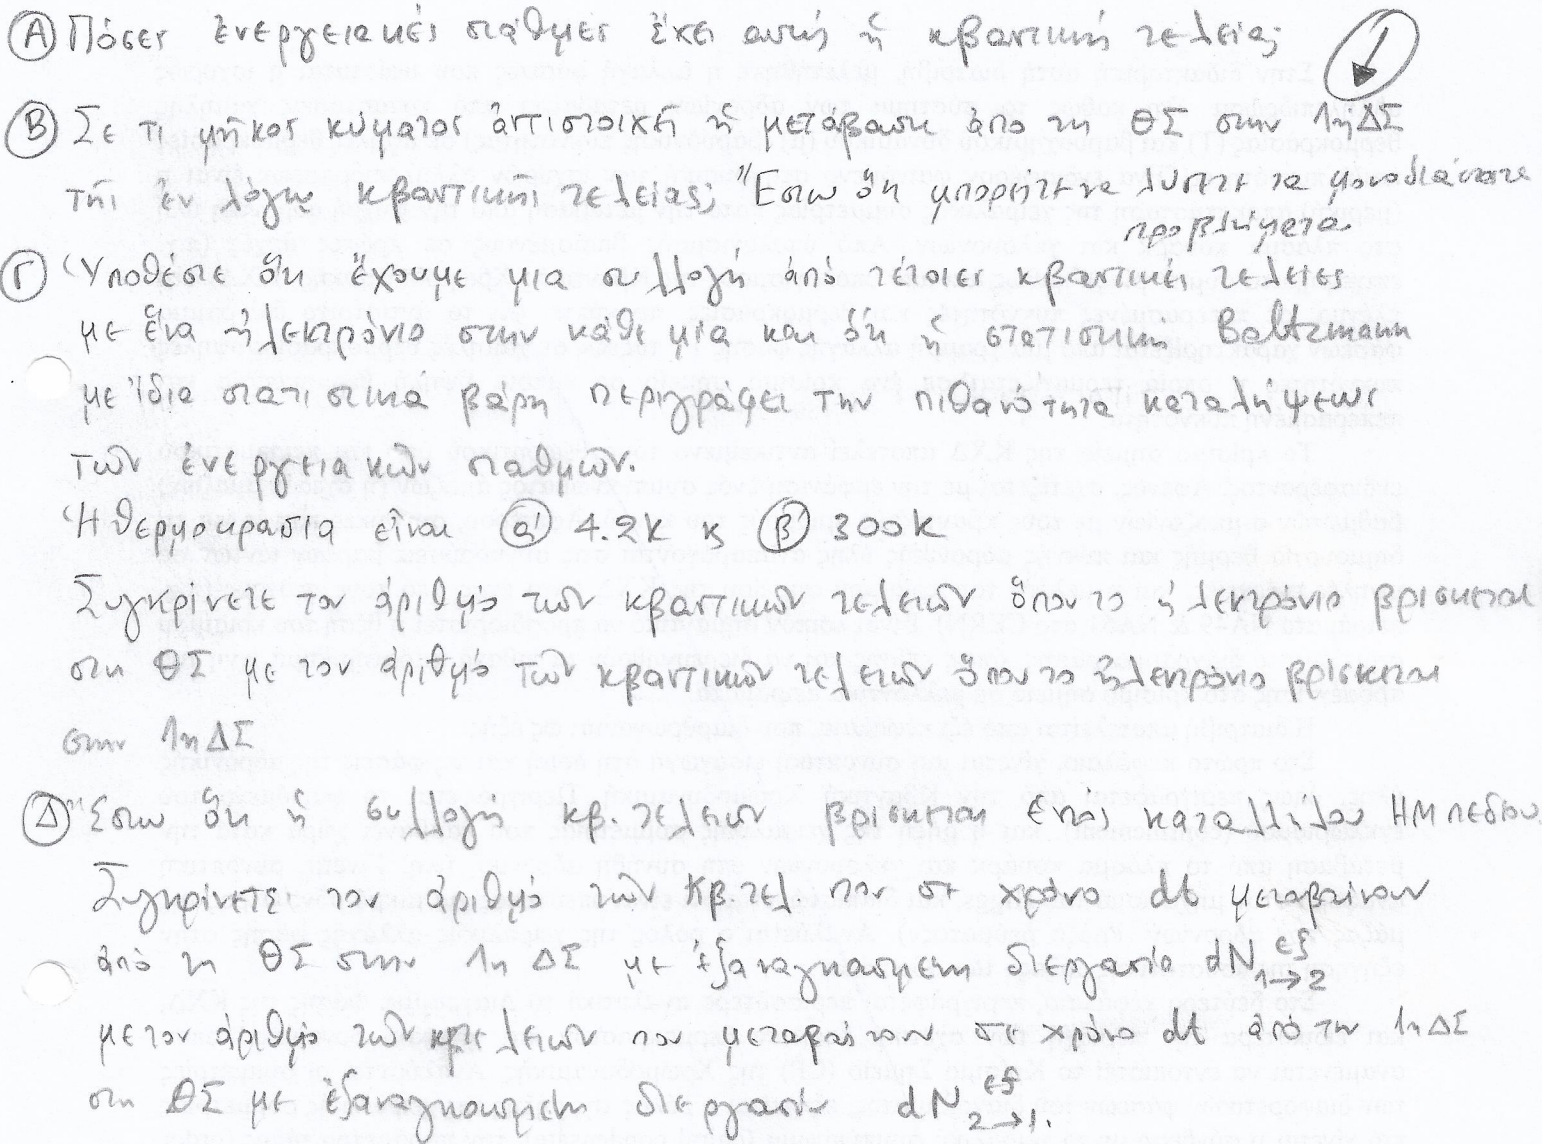 Α Πόσες ἐνεργειακές στάθμες ἔχει αυτή ἡ κβαντική τελεία;
Β Σε τι μῆκος κύματος ἀντιστοιχεῖ ἡ μετάβαση ἀπὸ τη ΘΣ στην 1η ΔΣ
τῆς ἐν λόγῳ κβαντικῆς τελείας; Ἔστω ὅτι μπορεῖτε να λύσετε τα μονοδιάστατα
προβλήματα
Γ Ὑποθέστε ὅτι ἔχουμε μια συλλογή ἀπὸ τέτοιες κβαντικές τελείες
με ἕνα ἠλεκτρόνιο στην κάθε μία και ὅτι ἡ στατιστική Boltzmann
με ἴδια στατιστικά βάρη περιγράφει την πιθανότητα καταλήψεως
τῶν ἐνεργειακῶν σταθμῶν.
Ἡ θερμοκρασία εἶναι α' 4.2K ϗ β' 300K
Συγκρίνετε τον ἀριθμό τῶν κβαντικῶν τελειῶν ὅπου το ἠλεκτρόνιο βρίσκεται
στη ΘΣ με τον ἀριθμό τῶν κβαντικῶν τελειῶν ὅπου το ἠλεκτρόνιο βρίσκεται
στην 1η ΔΣ
Δ Ἔστω ὅτι ἡ συλλογή κβ. τελειῶν βρίσκεται ἐντός καταλλήλου ΗΜ πεδίου.
Συγκρίνετε τον ἀριθμό τῶν κβ τελ που σε χρόνο dt μεταβαίνουν
ἀπὸ τη ΘΣ στην 1η ΔΣ με ἐξαναγκασμένη διεργασία dN₁→₂^εξ
με τον ἀριθμό τῶν κβ τελειῶν που μεταβαίνουν σε χρόνο dt ἀπὸ την 1η ΔΣ
στη ΘΣ με ἐξαναγκασμένη διεργασία dN₂→₁^εξ.